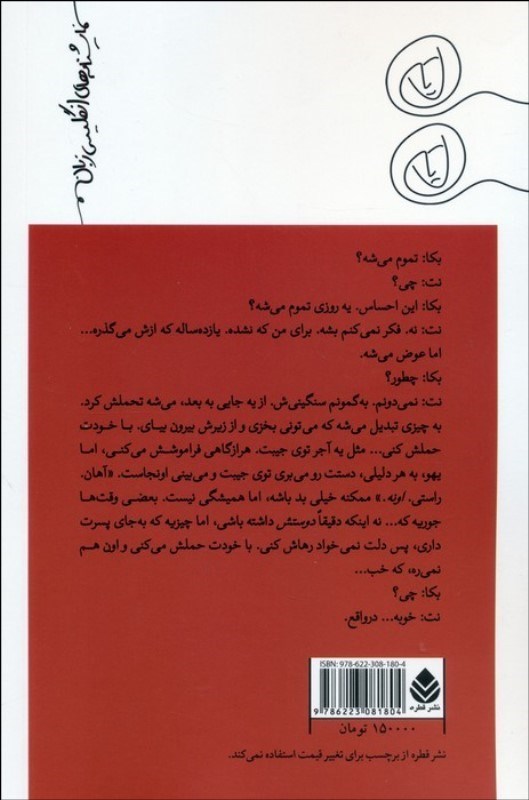 نمایشنامه‌های انگلیسی‌زبان
بکا: تموم می‌شه؟
نت: چی؟
بکا: این احساس. یه روزی تموم می‌شه؟
نت: نه. فکر نمی‌کنم بشه. برای من که نشده. یازده‌ساله که ازش می‌گذره...
اما عوض می‌شه.
بکا: چطور؟
نت: نمی‌دونم. به‌گمونم سنگینی‌ش. از یه جایی به بعد، می‌شه تحملش کرد.
به چیزی تبدیل می‌شه که می‌تونی بخزی و از زیرش بیرون بیای. با خودت
حملش کنی... مثل یه آجر توی جیبت. هرازگاهی فراموشش می‌کنی، اما
یهو، به هر دلیلی، دستت رو می‌بری توی جیبت و می‌بینی اونجاست. «آهان.
راستی. اونه.» ممکنه خیلی بد باشه، اما همیشگی نیست. بعضی وقت‌ها
جوریه که... نه اینکه دقیقاً دوستش داشته باشی، اما چیزیه که به‌جای پسرت
داری، پس دلت نمی‌خواد رهاش کنی. با خودت حملش می‌کنی و اون هم
نمی‌ره، که خب...
بکا: چی؟
نت: خوبه... درواقع.
ISBN: 978-622-308-180-4
9 786223 081804
نشر قطره
۱۵۰۰۰۰ تومان
نشر قطره از برچسب برای تغییر قیمت استفاده نمی‌کند.